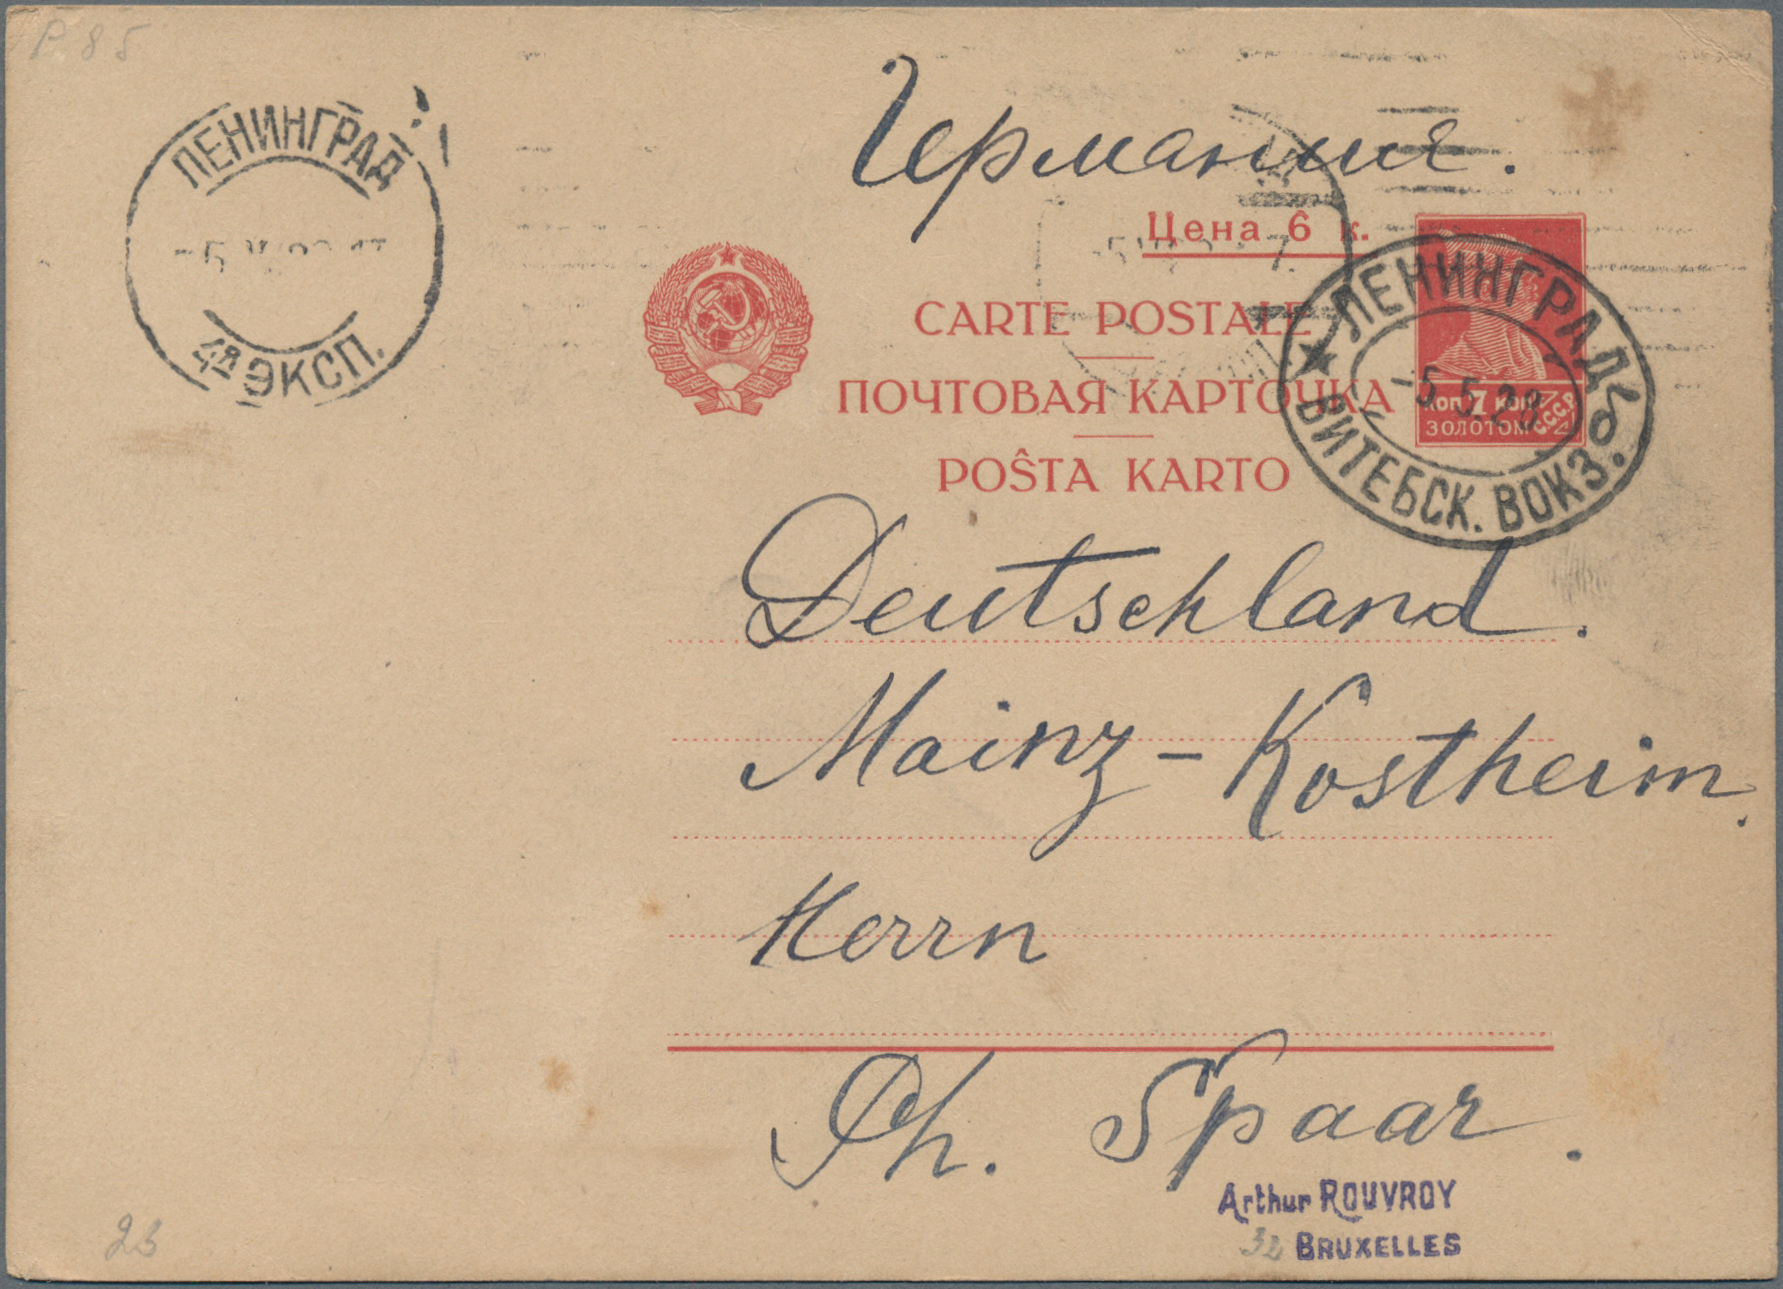 P. 85
Германия.
ЛЕНИНГРАД
4Я ЭКСП.
Цена 6 к.
CARTE POSTALE
ПОЧТОВАЯ КАРТОЧКА
POŜTA KARTO
КОП 7 КОП
ЗОЛОТОМ
СССР
ЛЕНИНГРАД
-5.5.28
ВИТЕБСК. ВОКЗ.
Deutschland.
Mainz-Kostheim.
Herrn
Ph. Spaar.
Arthur ROUVROY
32 BRUXELLES
23